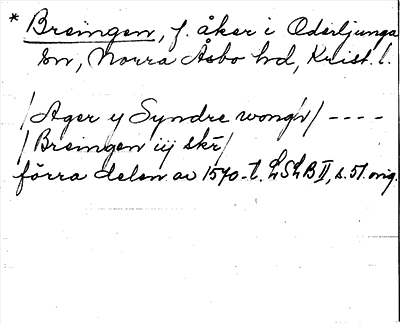 * Breingen, f. åker i Oderljunga
sn, Norra Åsbo hd, Krist. l.
/Ager y Syndre wongh/ ----
/Breingen iij skr/
förra delen av 1570-t. LSLB II, s. 51. orig.